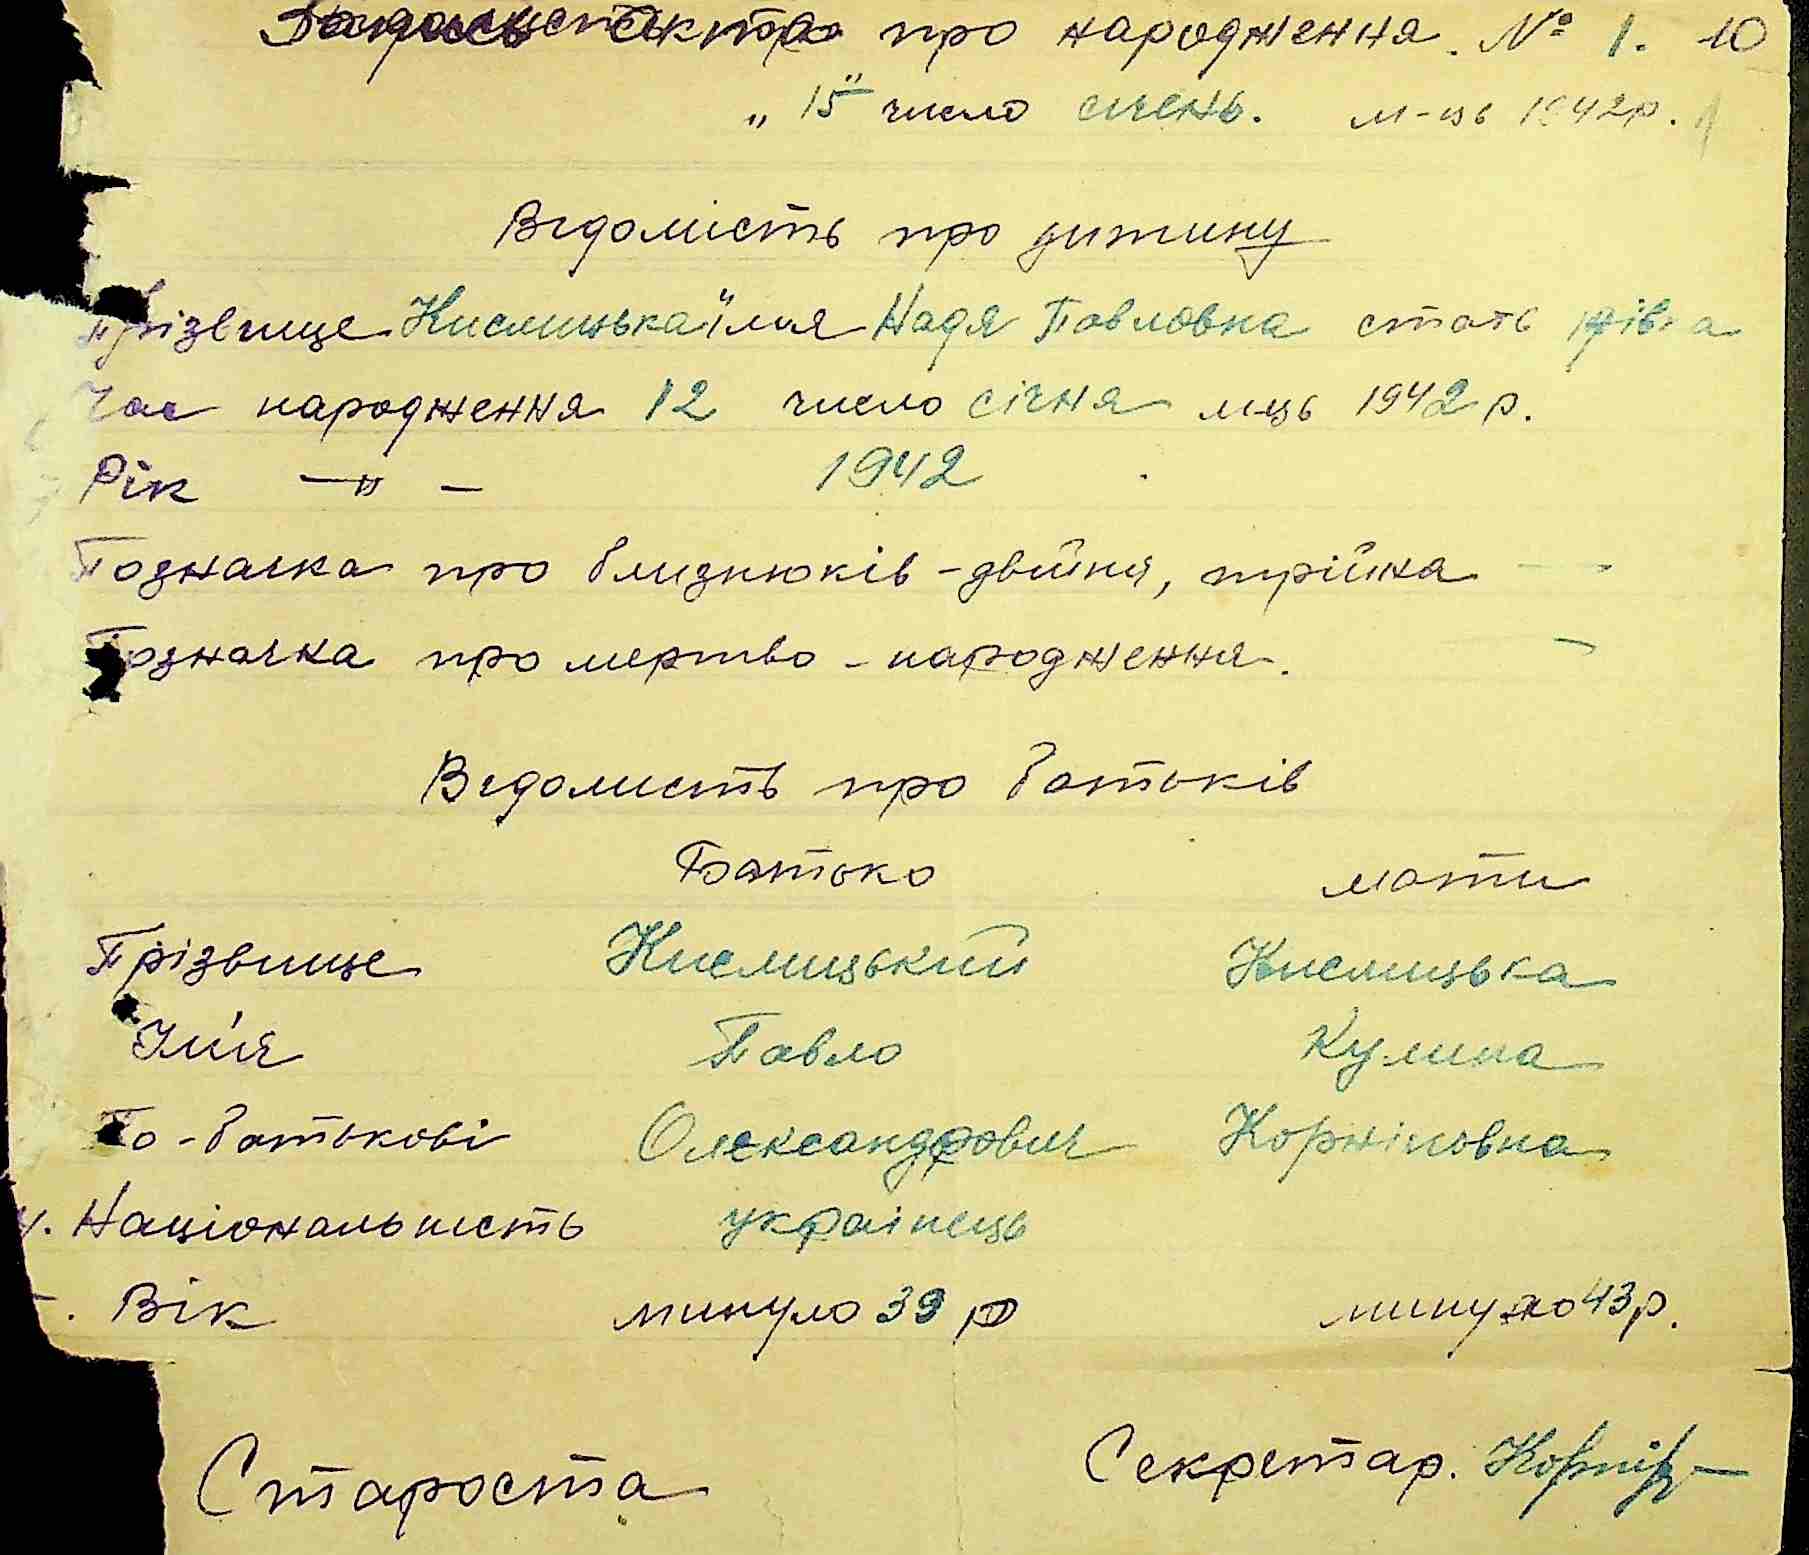 про народження. № 1. 10
„ 15 " число січень. м-ць 1942р.
Відомість про дитину
Прізвище Кислицька ім'я Надя Павловна стать дівка
Час народження 12 число січня м-ць 1942 р.
Рік —„— 1942
Позначка про близнюків - двійня, трійна —
Позначка про мертво - народження. —
Ведомість про батьків
Батько мати
Прізвище Кислицький Кислицька
Ім'я Павло Кулина
По-батькові Олександрович Корніловна
Національність українець
Вік минуло 39 р минуло 43 р.
Староста Секретар.